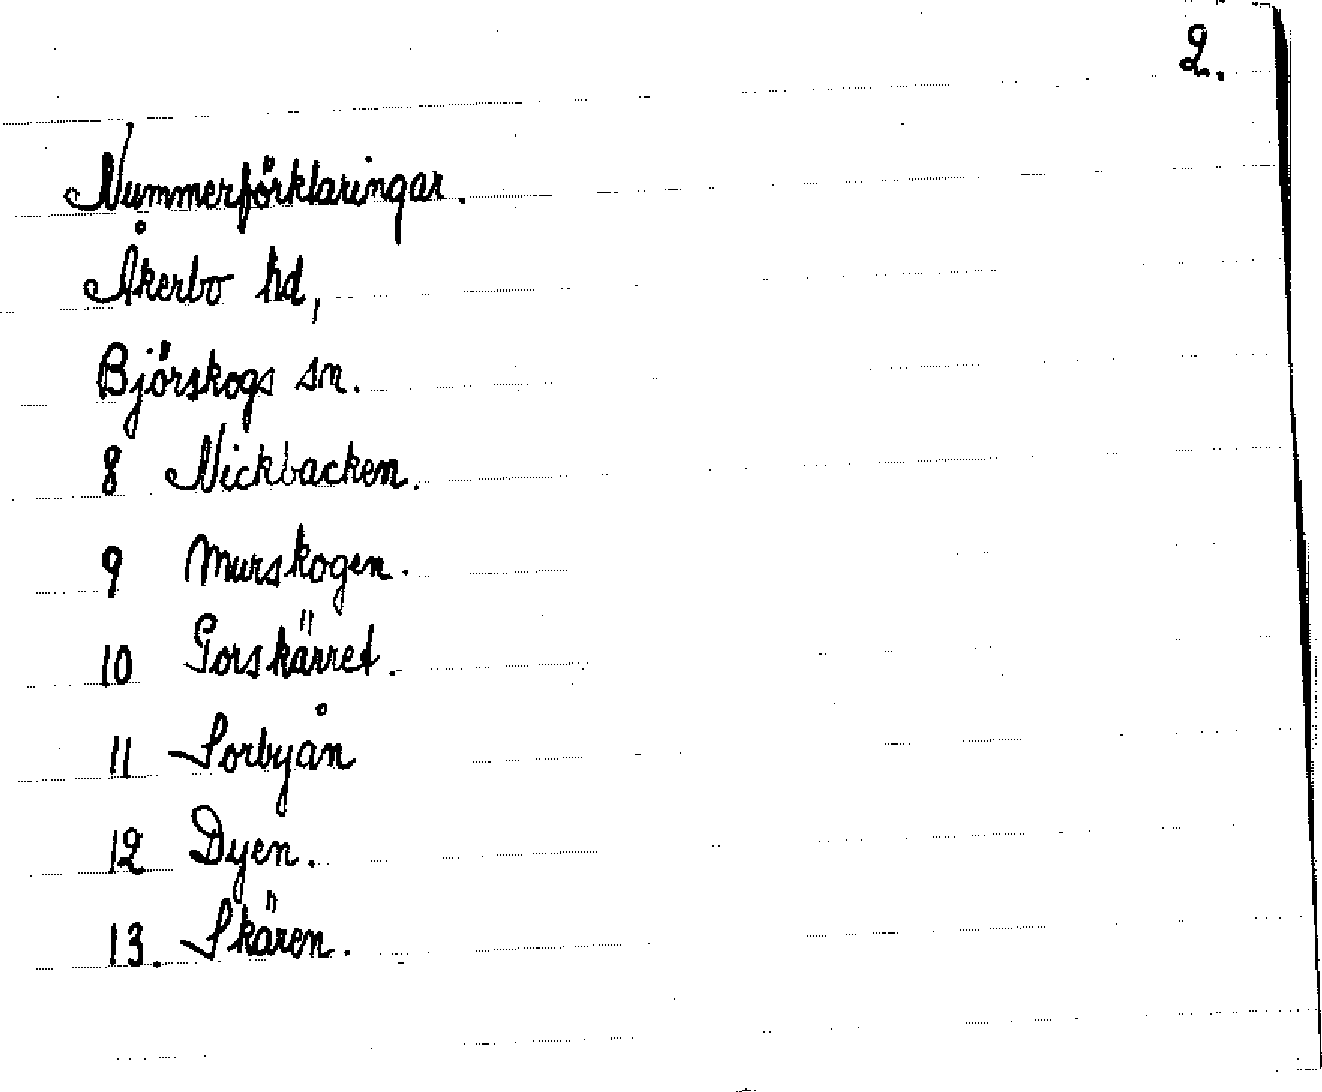 2.
Nummerförklaringar.
Åkerbo hd,
Björskogs sn.
8 Nickbacken.
9 Murskogen.
10 Porskärret.
11 Sorbyån
12 Dyen.
13. Skären.